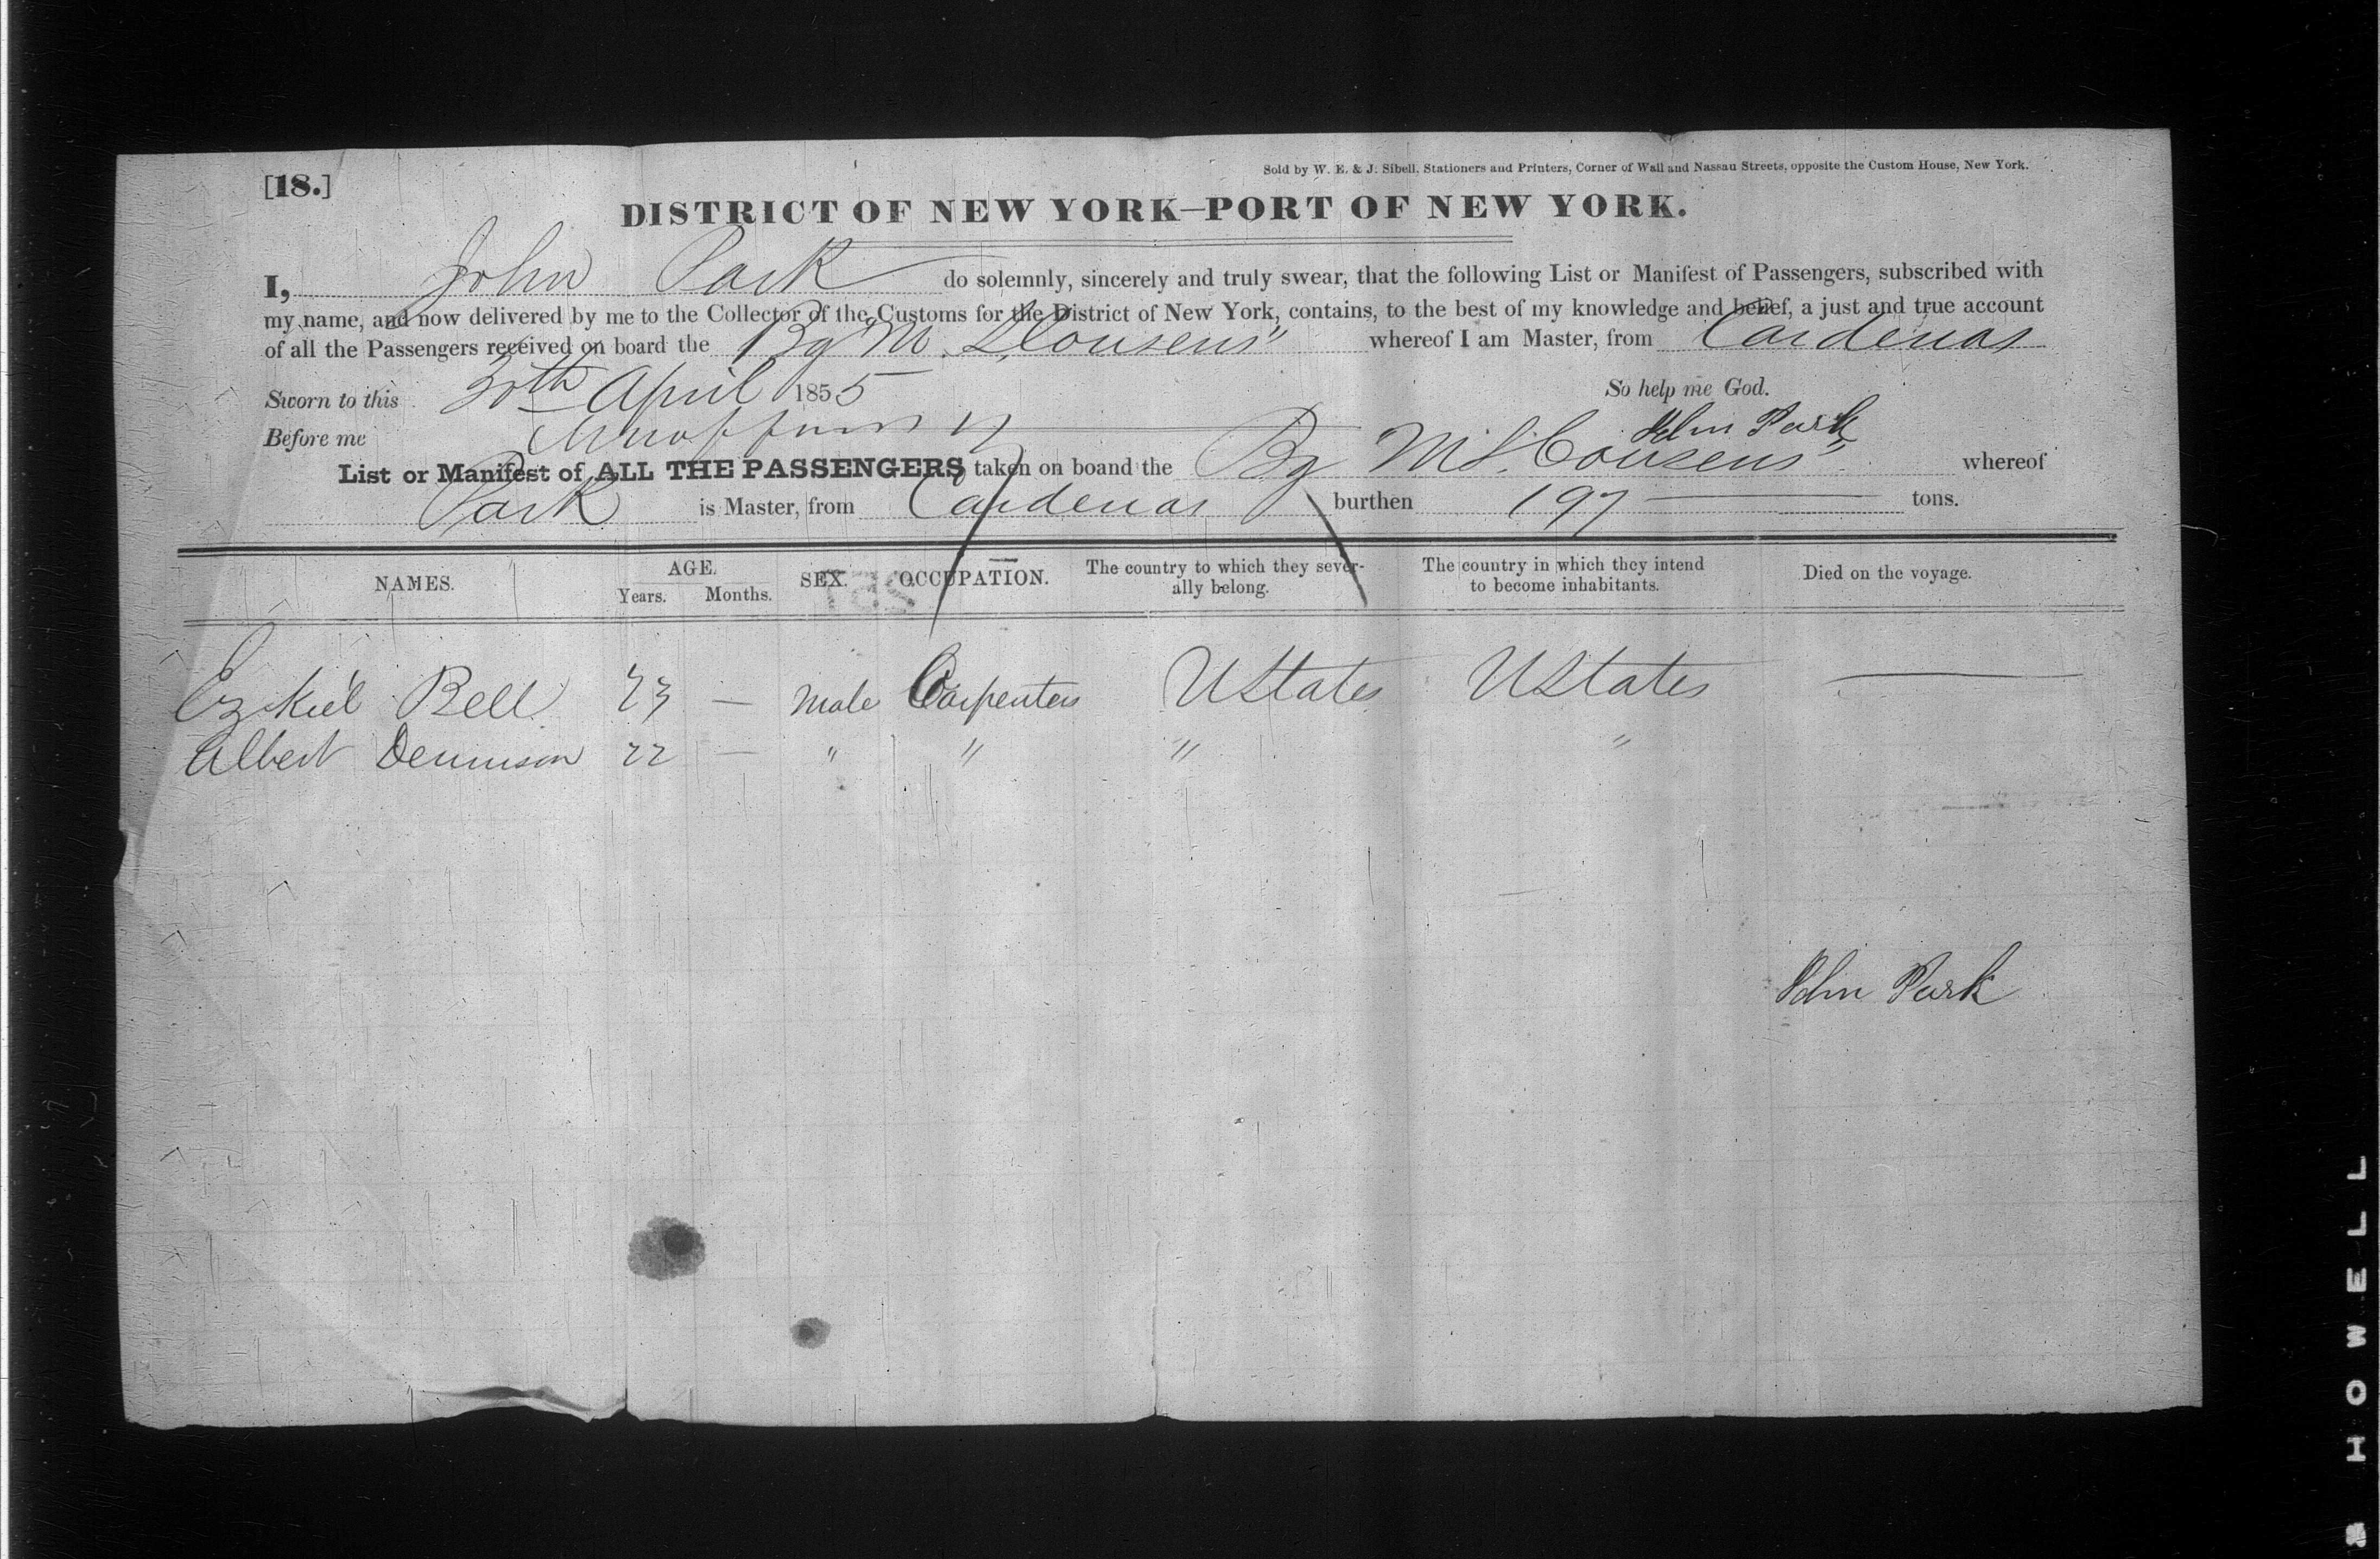 [18.]
Sold by W. E. & J. Sibell, Stationers and Printers, Corner of Wall and Nassau Streets, opposite the Custom House, New York.
DISTRICT OF NEW YORK—PORT OF NEW YORK.
I, John Park do solemnly, sincerely and truly swear, that the following List or Manifest of Passengers, subscribed with
my name, and now delivered by me to the Collector of the Customs for the District of New York, contains, to the best of my knowledge and belief, a just and true account
of all the Passengers received on board the Bg "M. S. Cousens" whereof I am Master, from Cardenas
Sworn to this 30th April 1855 So help me God.
Before me John Park
List or Manifest of ALL THE PASSENGERS taken on boand the Bg "M S. Cousens" whereof
Park is Master, from Cardenas burthen 197 tons.
NAMES. AGE. Years. Months. SEX. OCCUPATION. The country to which they sever- ally belong. The country in which they intend to become inhabitants. Died on the voyage.
Ezekiel Bell 23 — Male Carpenters UStates UStates —
Albert Dennison 22 — " " " "
John Park
HOWELL